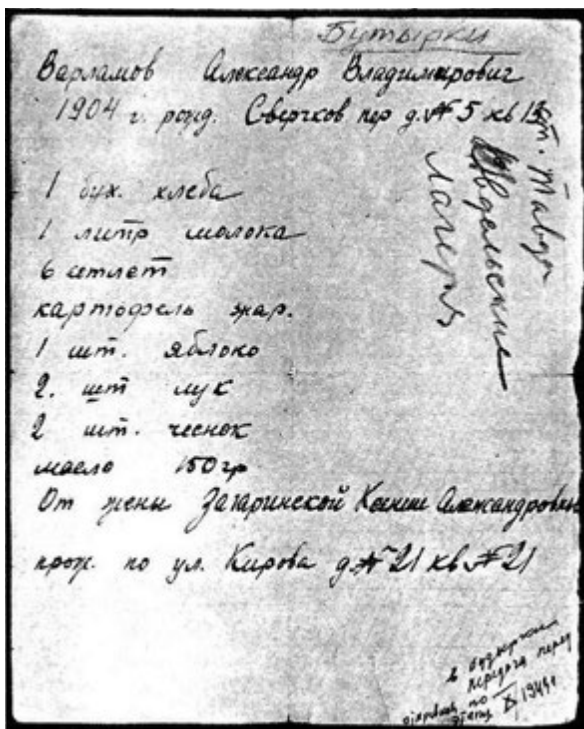 Бутырки
Варламов Александр Владимирович
1904 г. рожд. Сверчков пер д. № 5 кв 13
ст. Тавда
Ивдельские
лагеря
1 бух. хлеба
1 литр молока
6 котлет
картофель жар.
1 шт. яблоко
2. шт лук
2 шт. чеснок
масло 150 гр
От жены Загаринской Ксении Александровны
прож. по ул. Кирова д № 21 кв № 21
в бутырки
передача перед
отправкой по
этапу X 1944